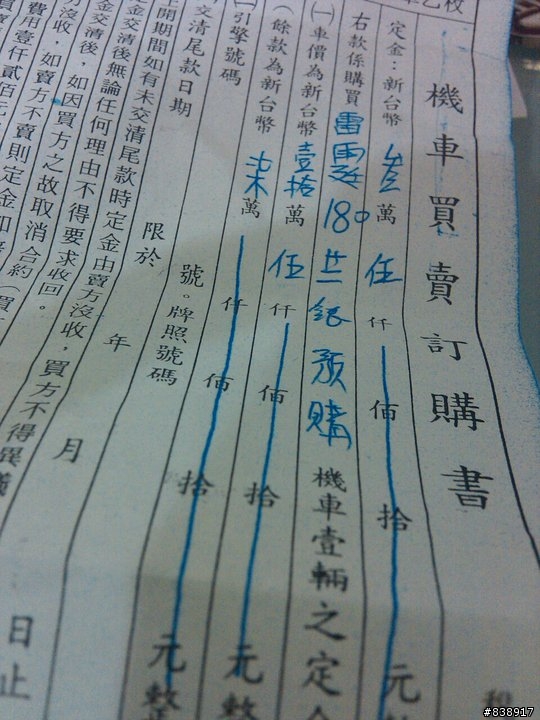 乙枚
機車買賣訂購書
定金：新台幣壹萬伍仟佰拾元整
右款係購買雷霆180銀預購機車壹輛之定金
(一)車價為新台幣壹拾萬伍仟佰拾元整
(餘款為新台幣萬仟佰拾元整
(二)引擎號碼 號。牌照號碼
交清尾款日期 限於 年 月 日止
上開期間如有未交清尾款時定金由賣方沒收，買方不得異議
定金交清後無論任何理由不得要求收回。
金交清後，如因買方之故取消合約（買
方沒收，如賣方不賣則定金加
費用壹仟貳佰元
#838917